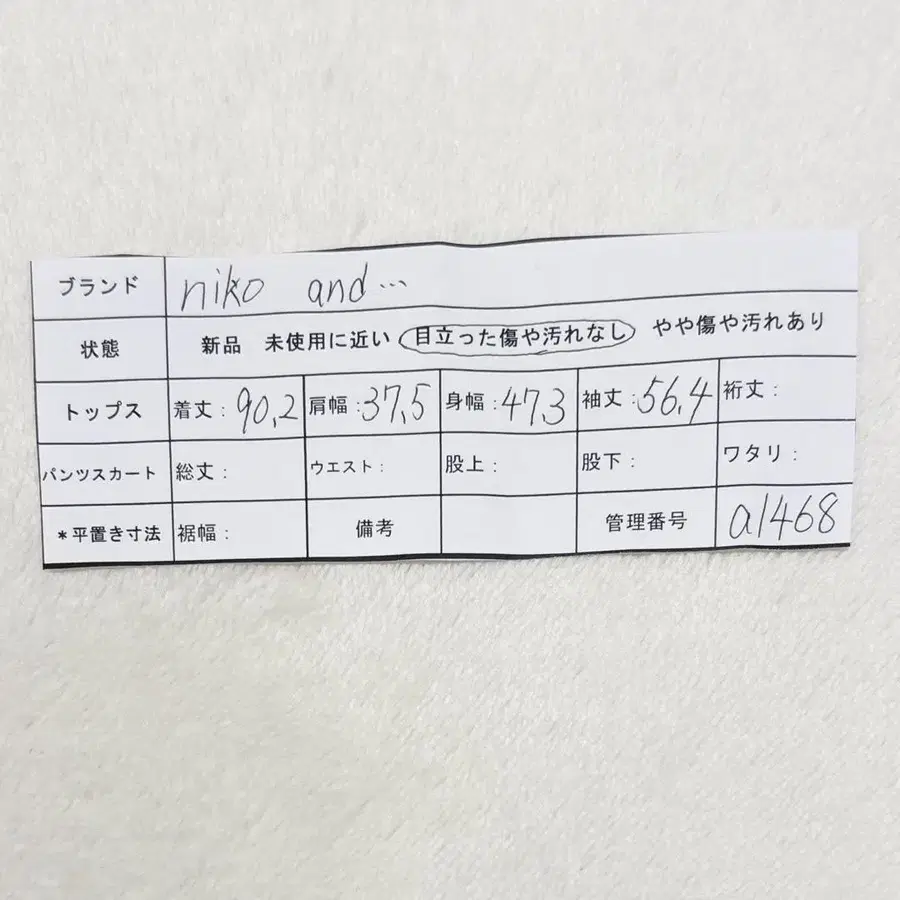 ブランド niko and...
状態 新品 未使用に近い 目立った傷や汚れなし やや傷や汚れあり
トップス 着丈:90,2 肩幅:37,5 身幅:47,3 袖丈:56,4 裄丈:
パンツスカート 総丈: ウエスト: 股上: 股下: ワタリ:
*平置き寸法 裾幅: 備考 管理番号 a1468